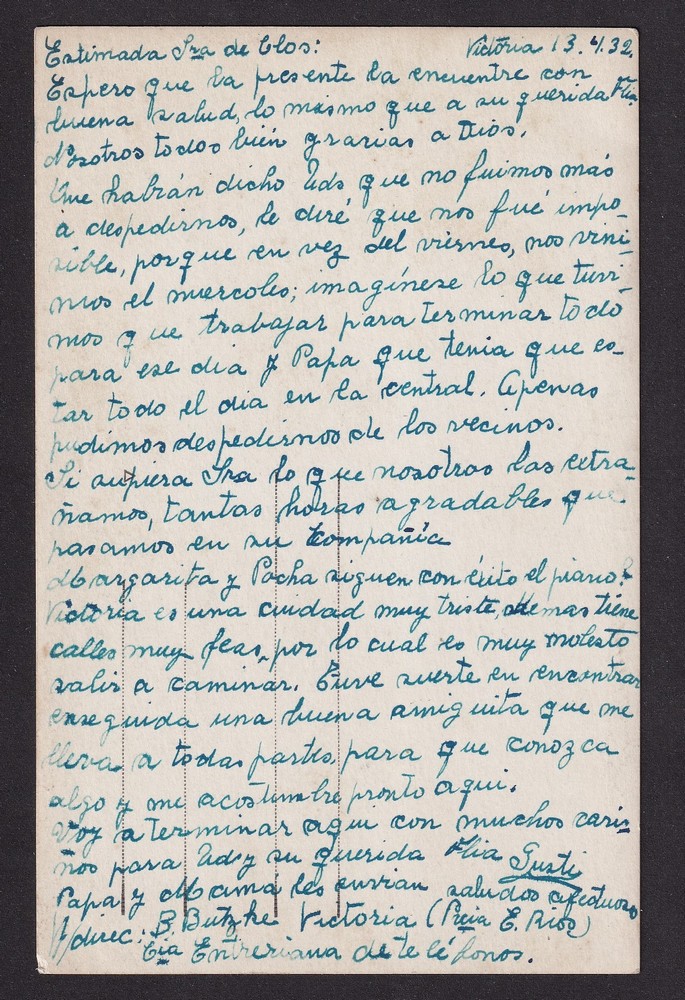 Estimada Sra de Clos: Victoria 13.4.32.
Espero que la presente la encuentre con
buena salud, lo mismo que a su querida Flia
Nosotros todos bién gracias a Dios.
Que habrán dicho Uds que no fuimos más
a despedirnos, le diré que nos fué impo-
sible, porque en vez del viernes, nos vini-
mos el miercoles; imagínese lo que tuvi-
mos que trabajar para terminar todo
para ese dia y Papa que tenia que es-
tar todo el dia en la central. Apenas
pudimos despedirnos de los vecinos.
Si supiera Sra lo que nosotras las extra-
ñamos, tantas horas agradables que
pasamos en su compañía
Margarita y Pocha siguen con éxito el piano?
Victoria es una ciudad muy triste, demas tiene
calles muy feas, por lo cual es muy molesto
salir a caminar. Tuve suerte en encontrar
enseguida una buena amiguita que me
lleva a todas partes, para que conozca
algo y me acostumbre pronto aqui.
Voy a terminar aqui con muchos cari-
ños para Ud y su querida Flia Gusti
Papa y Mama les envian saludos afectuosos
N/direc: B. Butzke Victoria (Prcia E. Rios)
Cia Entreriana de teléfonos.